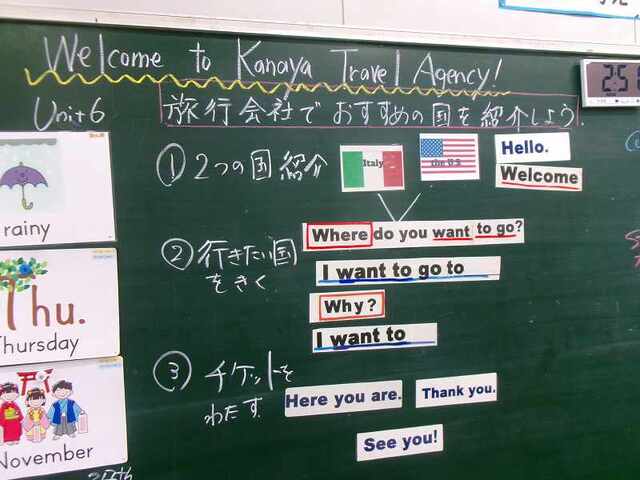 Welcome to Kanaya Travel Agency!
Unit 6
旅行会社で おすすめの国を紹介しよう.
① 2つの国紹介
Italy
the U.S
Hello.
Welcome
② 行きたい国をきく
Where do you want to go?
I want to go to
Why?
I want to
③ チケットをわたす.
Here you are.
Thank you.
See you!
rainy
Thu.
Thursday
November
25th